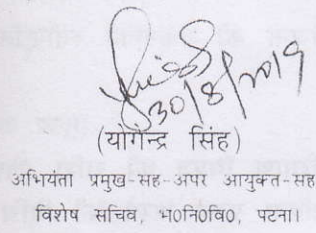 30/8/2019
(योगेन्द्र सिंह)
अभियंता प्रमुख-सह-अपर आयुक्त-सह
विशेष सचिव, भ०नि०वि०, पटना।